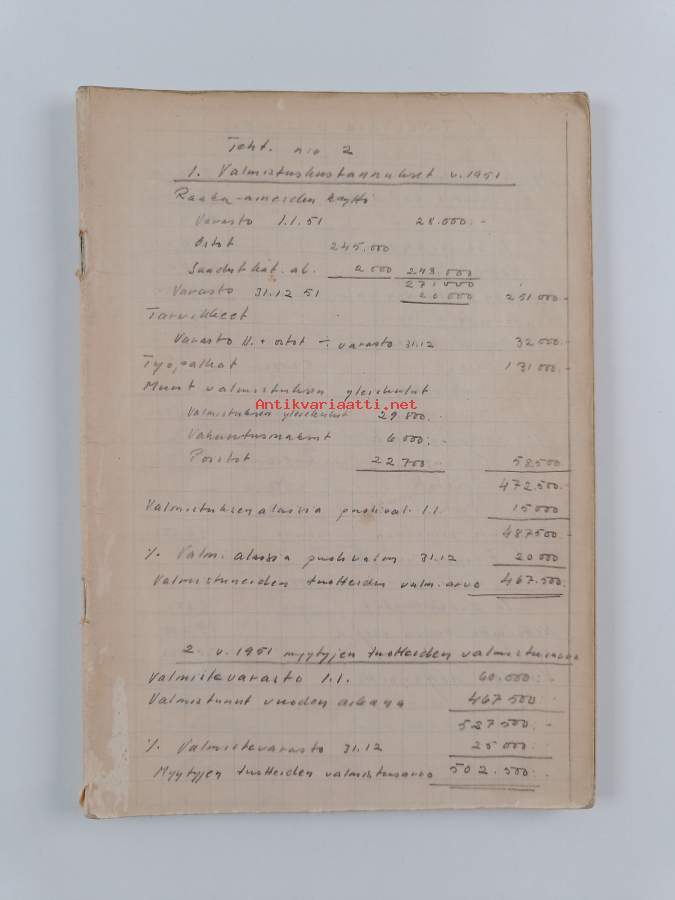 Teht. n:o 2
1. Valmistuskustannukset v. 1951
Raaka-aineiden käyttö
Varasto 1.1.51 28.000.-
Ostot 245.000
Saadut hat. al. 2 000 243.000
271000
Varasto 31.12 51 20.000 251000.-
Tarvikkeet
Varasto 1.1. + ostot ÷ varasto 31.12 32000.-
Työpalkat 131000.-
Muut valmistuksen yleiskulut
Valmistuksen yleiskulut 29.800.-
Vakuutusmaksut 6000.-
Poistot 22700.- 58500
472.500.-
Valmistuksen alaisia puolival. 1.1. 15000
487500.-
./. Valm. alaisia puolivalm. 31.12 20000
Valmistuneiden tuotteiden valm. arvo 467.500.-
Antikvariaatti.net
2. v. 1951 myytyjen tuotteiden valmistusarvo
Valmistevarasto 1.1. 60.000.-
Valmistunut vuoden aikana 467500
527500.-
./. Valmistevarasto 31.12 25000.-
Myytyjen tuotteiden valmistusarvo 502.500.-